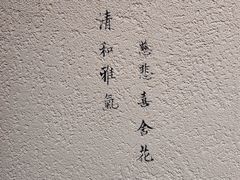 慈悲喜舍花
清和雅氣